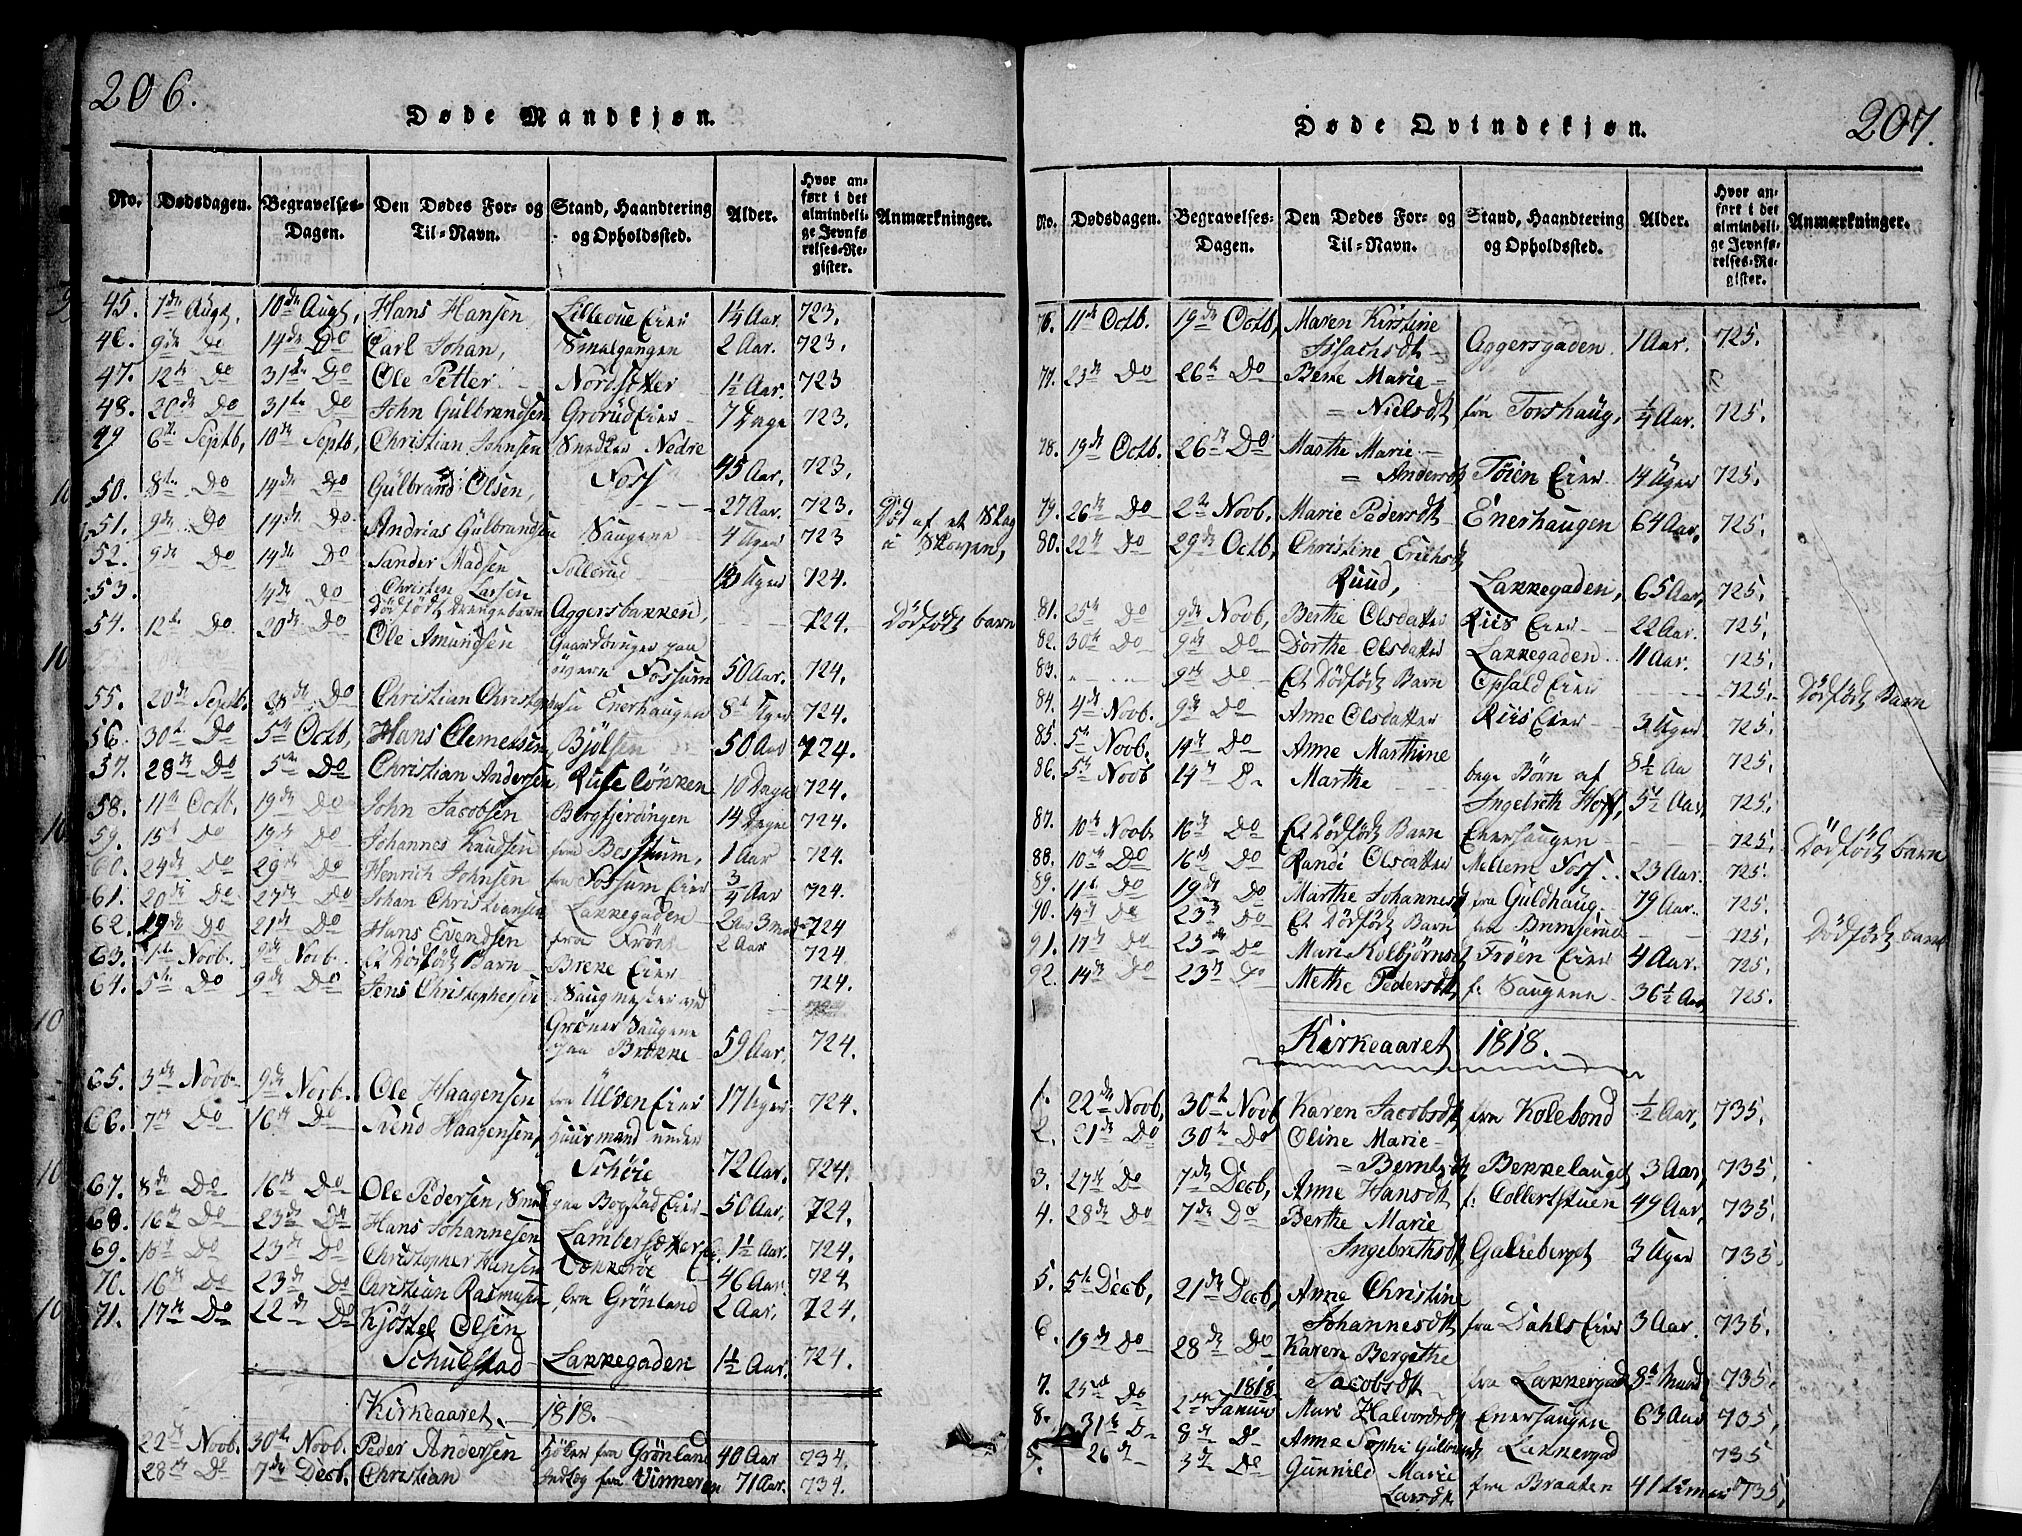 206.
Døde Mandkjøn.
No. Dødsdagen. Begravelses-Dagen. Den Dødes For- og Til-Navn. Stand, Haandtering og Opholdssted. Alder. Hvor anført i det almindelige Jevnførelses-Register. Anmærkninger.
45. 7de Augt. 10de Augt, Hans Hansen Lilleöue Eier 1¼ Aar. 723.
46. 9de Do 14de Do Carl Johan, Smalgangen 2 Aar. 723.
47. 12te Do 31te Do Ole Petter Nordseter 1½ Aar. 723
48. 20de Do 31te Do John Gülbrandsen Grorud Eier 7 Dage 723.
49 6te Septb, 10de Septb, Christian Johnsen Snedker Nedre
Foss 45 Aar, 723,
50. 8de Do 14de Do Gülbrand Olsen, 27 Aar. 723.
51. 9de Do 14de Do Andrias Gülbrandsen Saugene 4 Uger 723 Död af et Slag
i Skoven,
52. 9de Do 14de Do Sander Madsen Sollerud Uger 724.
53. 4de Do Christen Larsen
Dödfödt Drengebarn Aggersbakken, 724. Dödfödt barn
54. 12te Do 20de Do Ole Amundsen Gaardbruger paa
övern Fossum 50 Aar. 724.
55. 20de Septb. 28de Do Christian Enerhaugen 8t Uger 724.
56. 30te Do 5te Octb, Hans Clemetsen Bjölsen 50 Aar 724.
57. 28de Do 5te Do Christian Andersen Ruselökken 10 Dage 724.
58. 11te Octb. 19de Do John Jacobsen Bergfjerdingen 14 Dage 724.
59. 15de Do 19de Do Johannes Knudsen fra Bestum, 1 Aar 724.
60. 24de Do 29de Do Henrich Johnsen fra Fossum Eier ¾ Aar 724.
61. 20de Do 27de Do Johan Christiansen Lakkegaden 2 Aar 3 mdr 724
62. 19de Do 21de Do Hans Evendsen fra Frönk 2 Aar 724.
63. 1te Novb. 9de Novb. Et Dödfödt Barn Breke Eier 724.
64. 5te Do 9de Do Jens Christophersen Saugmester ved
Gröner Saugene
paa Brekke 59 Aar, 724.
65. 3de Novb. 9de Novb. Ole Haagensen fra Ülven Eier 17 Uger 724.
66. 7de Do 16de Do Svend Haagensen, Huusmand under
Schöie 72 Aar. 724.
67. 8de Do 16de Do Ole Pedersen, Smed paa Bogstad Eier 50 Aar, 724.
68. 16de Do 23de Do Hans Johannesen Lamberseter Ei. 1½ Aar. 724.
69. 18de Do 23de Do Christopher Hansen 46 Aar. 724.
70. 16de Do 23de Do Christian Rasmusen fra Grönland 2 Aar. 724.
71. 17de Do 22de Do Kjöstel Olsen
Schulstad Lakkegaden 1½ Aar. 724.
Kirkeaaret 1818.
22de Novb. 30te Novb. Peder Andersen Höker fra Grönland 40 Aar 734.
28de Do 7de Decb, Christian Indlog fra Vinneren 71 Aar. 734.
207.
Døde Qvindekjøn.
No. Dødsdagen. Begravelses-Dagen. Den Dødes For- og Til-Navn. Stand, Haandtering og Opholdssted. Alder. Hvor anført i det almindelige Jevnførelses-Register. Anmærkninger.
76. 11te Octb. 19de Octb, Maren Kirstine
Issachsdt Aggersgaden. 1 Aar. 725.
77. 23de Do 26te Do Berte Marie
Nielsdt fra Torshaug, ¼ Aar. 725.
78. 19de Octb. 26de Do Marthe Marie
Andersdt Töien Eier 14 Uger 725.
79. 26de Do 2te Novb. Marie Pedersdt Enerhaugen 64 Aar, 725.
80. 22de Do 29de Octb, Christine Erichsdt
Ruud, Lakkegaden, 65 Aar, 725.
81. 25te Do 9de Novb, Berthe Olsdatter Riis Eier 22 Aar. 725.
82. 30te Do 9de Do Dorthe Olsdatter Lakkegaden 11 Aar. 725.
83. 9de Do Et Dödfödt Barn Opsald Eier 725. Dödfödt Barn
84. 4de Novb. 9de Do Anne Olsdatter Riis Eier 3 Uger 725.
85. 5te Novb. 14de Do Anne Marthine 8½ Aa 725.
86. 5te Novb 14de Do Marthe bege Börn af
Ingebreth Hoff, 5½ Aar, 725.
87. 10de Novb. 16de Do Et Dödfödt Barn Enerhaugen 725. Dödfödt barn
88. 10de Do 16de Do Randi Olsdatter Mellem Foss 23 Aar. 725.
89. 11te Do 19de Do Marthe Johannesdt fra Guldhaug 79 Aar. 725.
90. 14de Do 23de Do Et Dödfödt Barn fra Brimserud 725. Dödfödt barn
91. 17de Do 23de Do Mari Kolbjörnsdt Fröen Eier 4 Aar. 725.
92. 14de Do 23de Do Methe Pedersdt f. Saugene 36½ Aar 725.
Kirkeaaret 1818.
1. 22de Novb, 30te Novb Karen Jacobsdt fra Kolebond ½ Aar, 735.
2. 21de Do 30te Do Oline Marie
Berntsdt Bekkelauget 3 Aar, 735.
3. 27de Do 7de Decb, Anne Hansdt f: Collerstuen 49 Aar, 735.
4. 28de Do 7de Do Berthe Marie
Ingebrethsdt Galieberget 3 Uger 735
5. 5te Decb, 21de Decb, Anne Christine
Johannesdt fra Dahls Eier 3 Aar. 735.
6. 19de Do 28de Do Karen Bergethe
Jacobsdt fra Lakkegad 8t Maand 735.
7. 25de Do 1818 2den Januar Mari Halvorsdt Enerhaugen 63 Aar 735.
8. 31te Do 8de Do Anne Sophi Gulbrandsdt Lakkegad 735
9. 26de 3de Do Gunnild Marie
Larsdt fra Braaten 41 timer 735,